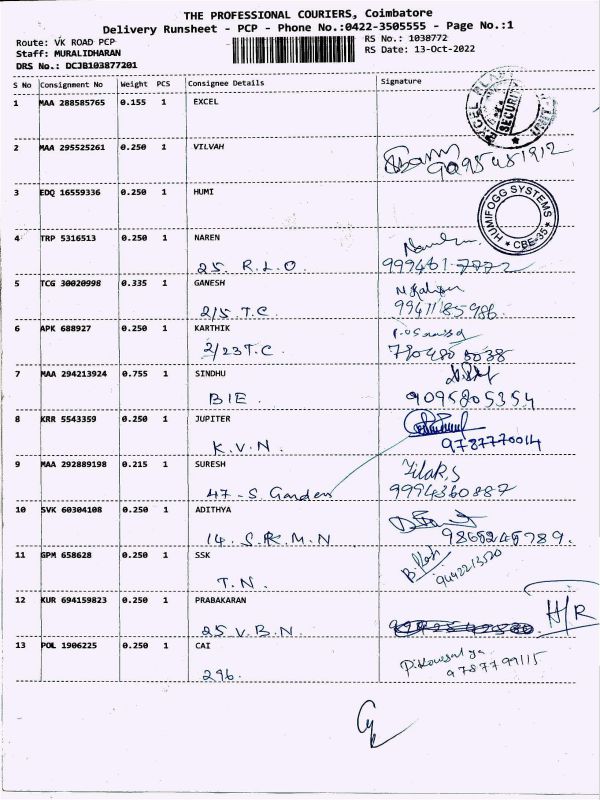 THE PROFESSIONAL COURIERS, Coimbatore
Delivery Runsheet - PCP - Phone No.:0422-3505555 - Page No.:1
Route: VK ROAD PCP
RS No.: 1038772
Staff: MURALIDHARAN
RS Date: 13-Oct-2022
DRS No.: DCJB103877201
S No Consignment No Weight PCS Consignee Details Signature
1 MAA 288585765 0.155 1 EXCEL
SECURITY
2 MAA 295525261 0.250 1 VILVAH
3 EDQ 16559336 0.250 1 HUMI
HUMIFOGG SYSTEMS * CBE-35 *
4 TRP 5316513 0.250 1 NAREN
25. R.L.O
5 TCG 30020998 0.335 1 GANESH
2/5 T.C. 9941185986.
6 APK 688927 0.250 1 KARTHIK
2/23 T.C.
7 MAA 294213924 0.755 1 SINDHU
BIE. 9095205354
8 KRR 5543359 0.250 1 JUPITER
K.V.N. 9787770014
9 MAA 292889198 0.215 1 SURESH
Tilak.S
47-S. Garden 9994360887
10 SVK 60304108 0.250 1 ADITHYA
14. S.R.M.N
11 GPM 658628 0.250 1 SSK
T.N.
12 KUR 694159823 0.250 1 PRABAKARAN
H/R
25 V.B.N.
13 POL 1906225 0.250 1 CAI
P.Kousalya
296. 9787799115